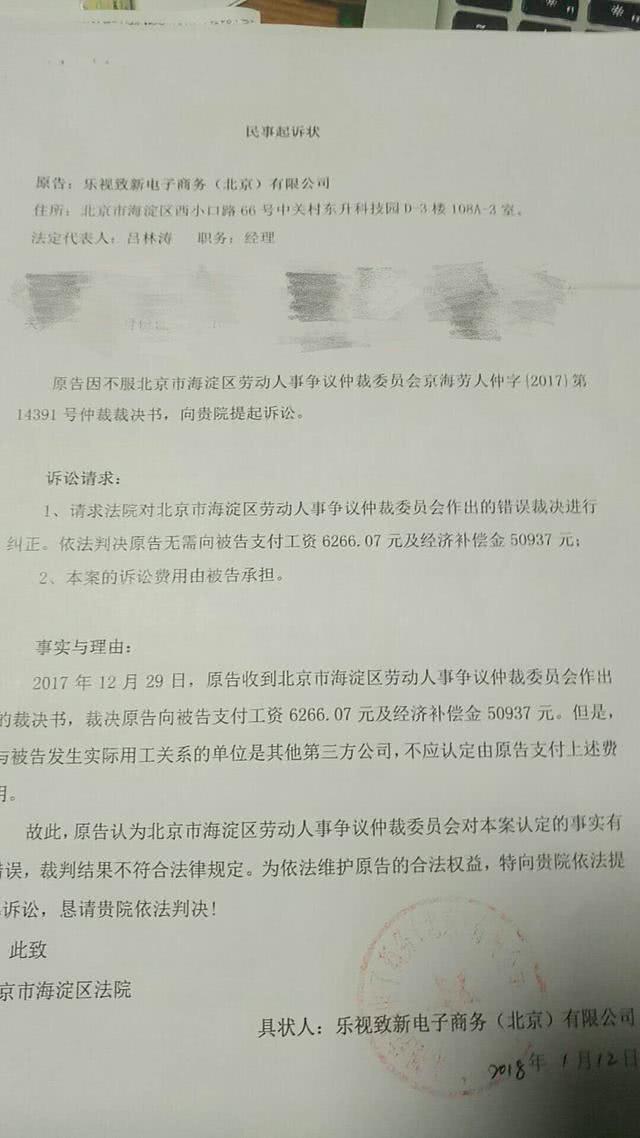 民事起诉状
原告：乐视致新电子商务（北京）有限公司
住所：北京市海淀区西小口路 66 号中关村东升科技园 D-3 楼 108A-3 室。
法定代表人：吕林涛 职务：经理
原告因不服北京市海淀区劳动人事争议仲裁委员会京海劳人仲字(2017)第
14391 号仲裁裁决书，向贵院提起诉讼。
诉讼请求：
1、请求法院对北京市海淀区劳动人事争议仲裁委员会作出的错误裁决进行
纠正。依法判决原告无需向被告支付工资 6266.07 元及经济补偿金 50937 元；
2、本案的诉讼费用由被告承担。
事实与理由：
2017 年 12 月 29 日，原告收到北京市海淀区劳动人事争议仲裁委员会作出
的裁决书，裁决原告向被告支付工资 6266.07 元及经济补偿金 50937 元。但是，
与被告发生实际用工关系的单位是其他第三方公司，不应认定由原告支付上述费
用。
故此，原告认为北京市海淀区劳动人事争议仲裁委员会对本案认定的事实有
错误，裁判结果不符合法律规定。为依法维护原告的合法权益，特向贵院依法提
诉讼，恳请贵院依法判决！
此致
京市海淀区法院
具状人：乐视致新电子商务（北京）有限公司
2018年 1月12日